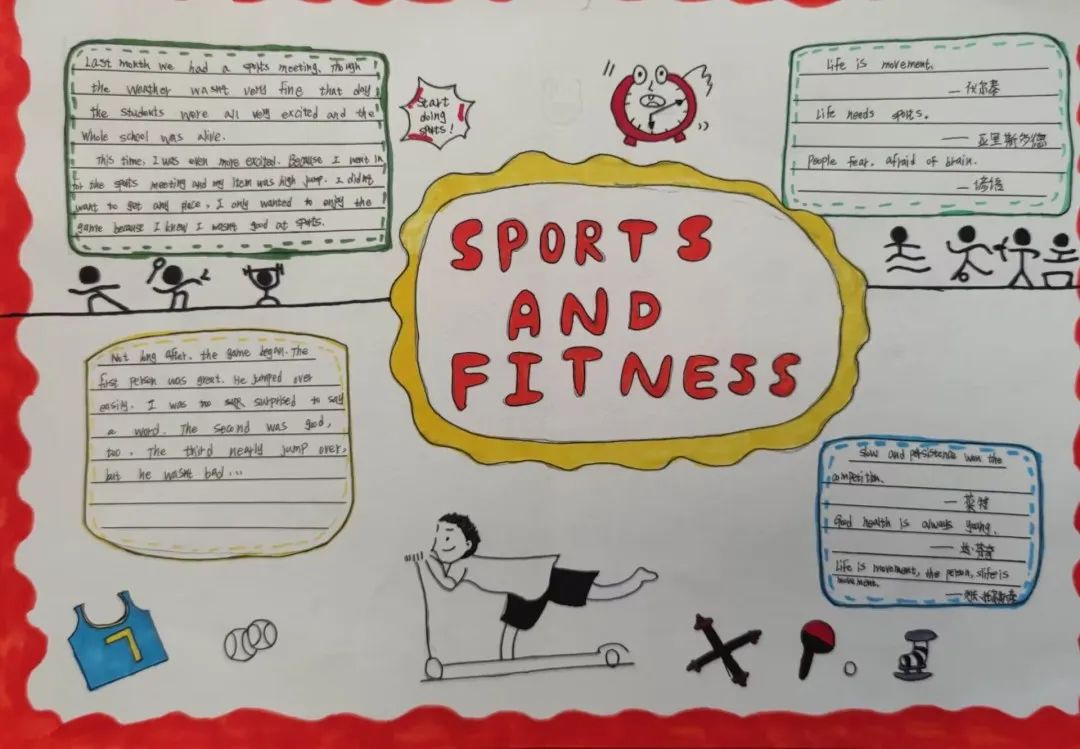 Last month we had a sports meeting. Though
the weather wasnt very fine that day
the students were all very excited and the
whole school was alive.
This time, I was even more excited. Because I went in
for the sports meeting and my item was high jump. I didnt
want to get any place, I only wanted to enjoy the
game because I knew I wasnt good at sports.
Start
doing
sports!
Life is movement.
—伏尔泰
Life needs sports.
—亚里斯多德
People fear, afraid of brain.
—谚语
SPORTS
AND
FITNESS
Not long after, the game began. The
first person was great. He jumped over
easily. I was too surprised to say
a word. The second was good,
too. The third nearly jump over,
but he wasnt bad...
Slow and persistence won the
competition.
Good health is always young.
Life is movement, the person, slife is
movement.
7